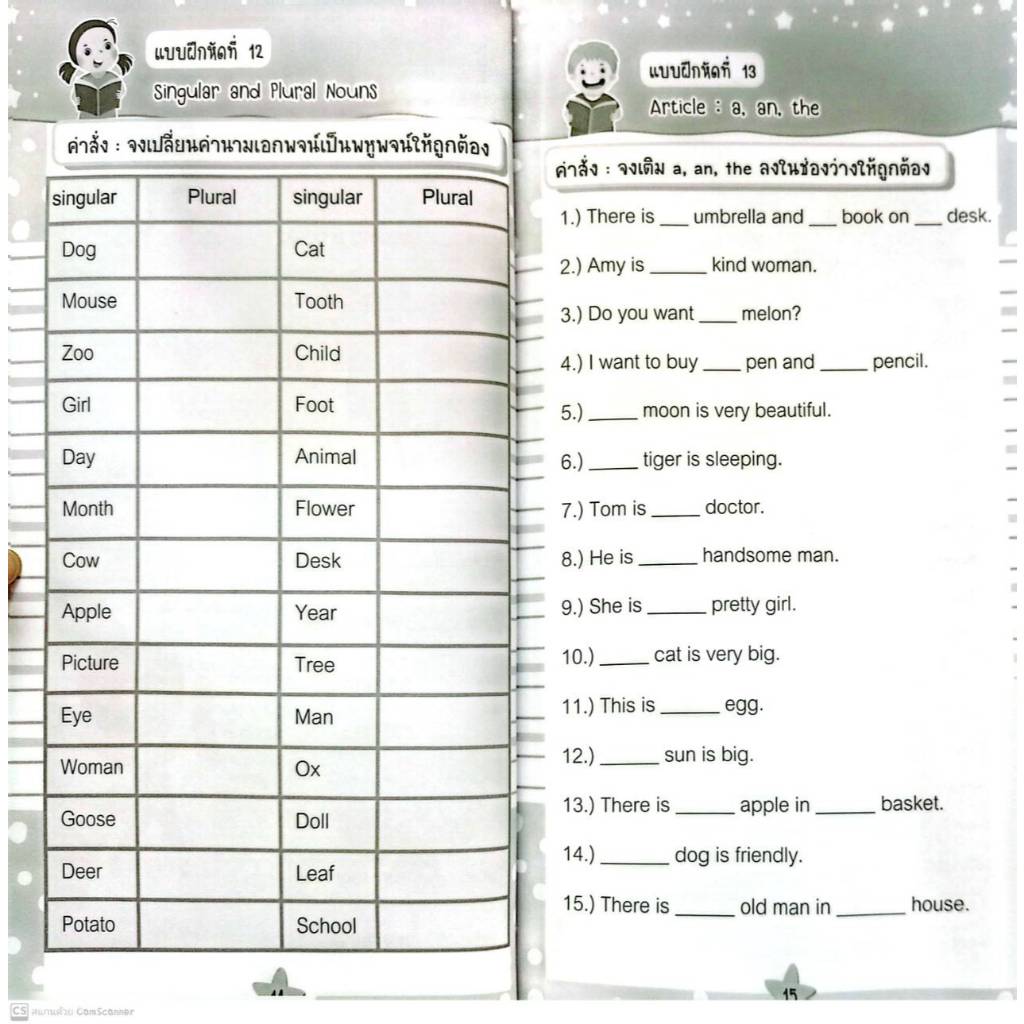 แบบฝึกหัดที่ 12
Singular and Plural Nouns
คำสั่ง : จงเปลี่ยนคำนามเอกพจน์เป็นพหูพจน์ให้ถูกต้อง
singular Plural singular Plural
Dog Cat
Mouse Tooth
Zoo Child
Girl Foot
Day Animal
Month Flower
Cow Desk
Apple Year
Picture Tree
Eye Man
Woman Ox
Goose Doll
Deer Leaf
Potato School
CS สแกนด้วย CamScanner
แบบฝึกหัดที่ 13
Article : a, an, the
คำสั่ง : จงเติม a, an, the ลงในช่องว่างให้ถูกต้อง
1.) There is ___ umbrella and ___ book on ___ desk.
2.) Amy is ______ kind woman.
3.) Do you want ____ melon?
4.) I want to buy ____ pen and _____ pencil.
5.) _____ moon is very beautiful.
6.) _____ tiger is sleeping.
7.) Tom is _____ doctor.
8.) He is ______ handsome man.
9.) She is ______ pretty girl.
10.) _____ cat is very big.
11.) This is ______ egg.
12.) ______ sun is big.
13.) There is ______ apple in ______ basket.
14.) _______ dog is friendly.
15.) There is ______ old man in _______ house.
15